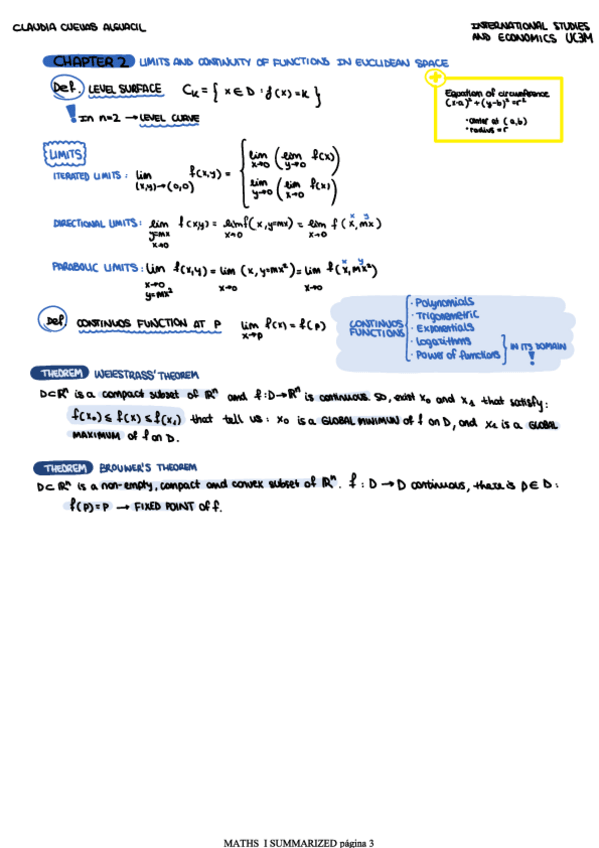 CLAUDIA CUEVAS ALGUACIL
INTERNATIONAL STUDIES
AND ECONOMICS UC3M
CHAPTER 2 LIMITS AND CONTINUITY OF FUNCTIONS IN EUCLIDEAN SPACE
Def. LEVEL SURFACE Cₖ = { x ∈ D : f(x) = K }
! In n=2 → LEVEL CURVE
Equation of circumference
(x-a)² + (y-b)² = r²
· center at (a,b)
· radius = r
LIMITS
ITERATED LIMITS: lim f(x,y) =
(x,y)→(0,0)
lim (lim f(x))
x→0 y→0
lim (lim f(x))
y→0 x→0
DIRECTIONAL LIMITS: lim f(x,y) = lim f(x, y=mx) = lim f(x, mx)
x y
y=mx x→0 x→0
x→0
PARABOLIC LIMITS: lim f(x,y) = lim (x, y=mx²) = lim f(x, mx²)
x y
x→0 x→0 x→0
y=mx²
Def. CONTINUOS FUNCTION AT P lim f(x) = f(p)
x→p
CONTINUOS
FUNCTIONS
· Polynomials
· Trigonometric
· Exponentials
· Logarithms
· Power of functions
IN ITS DOMAIN
!
THEOREM WEIESTRASS' THEOREM
D⊂ℝⁿ is a compact subset of ℝⁿ and f: D→ℝⁿ is continuous. SO, exist x₀ and x₁ that satisfy:
f(x₀) ≤ f(x) ≤ f(x₁) that tell us: x₀ is a GLOBAL MINIMUN of f on D, and x₁ is a GLOBAL
MAXIMUM of f on D.
THEOREM BROUWER'S THEOREM
D⊂ℝⁿ is a non-empty, compact and convex subset of ℝⁿ. f: D → D continuous, there is p∈D:
f(p)=p → FIXED POINT of f.
MATHS I SUMMARIZED página 3